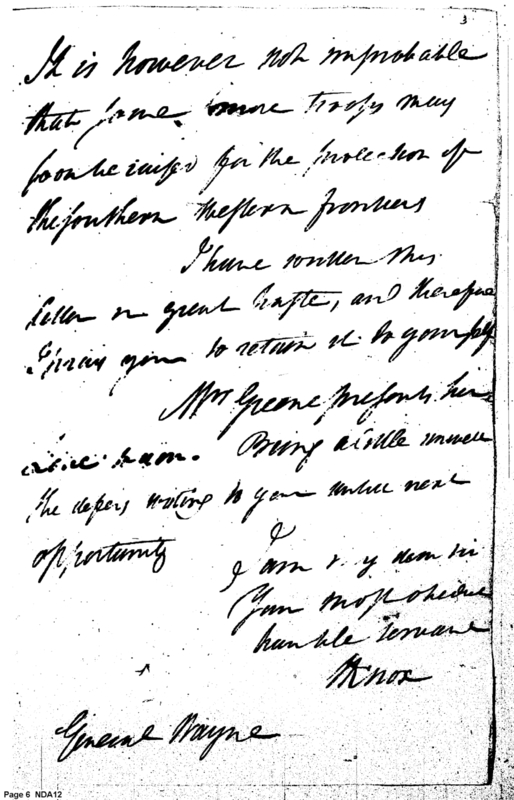 3
It is however not improbable
that some more troops may
soon be raised for the protection of
the southern Western frontiers
I have written this
letter in great haste, and therefore
I pray you to retain it to yourself
Mrs Greene presents her
love to you. Being a little unwell
she defers writing to you until next
opportunity
I am my dear sir
Your most obedient
humble servant
HKnox
General Wayne
Page 6 NDA12